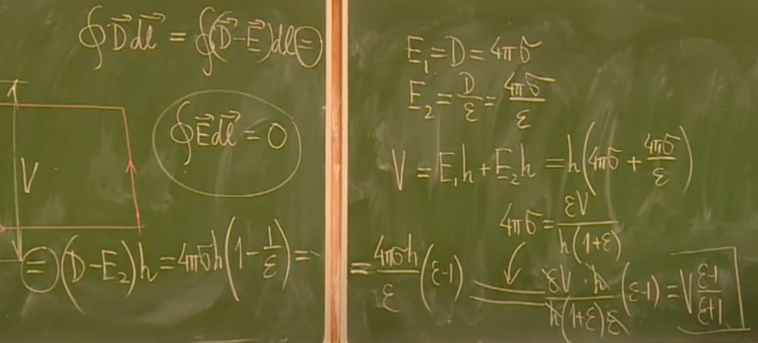 ∮D⃗dl⃗ = ∮(D⃗-E⃗)dl⃗ ⊜
∮E⃗dl⃗ = 0
V
⊜ (D-E₂)h = 4πσh(1-1/ε) = ...
E₁ = D = 4πσ
E₂ = D/ε = 4πσ/ε
V = E₁h + E₂h = h(4πσ + 4πσ/ε)
4πσ = εV/h(1+ε)
= 4πσh/ε (ε-1) = εV·h/h(1+ε)ε (ε-1) = V ε-1/ε+1